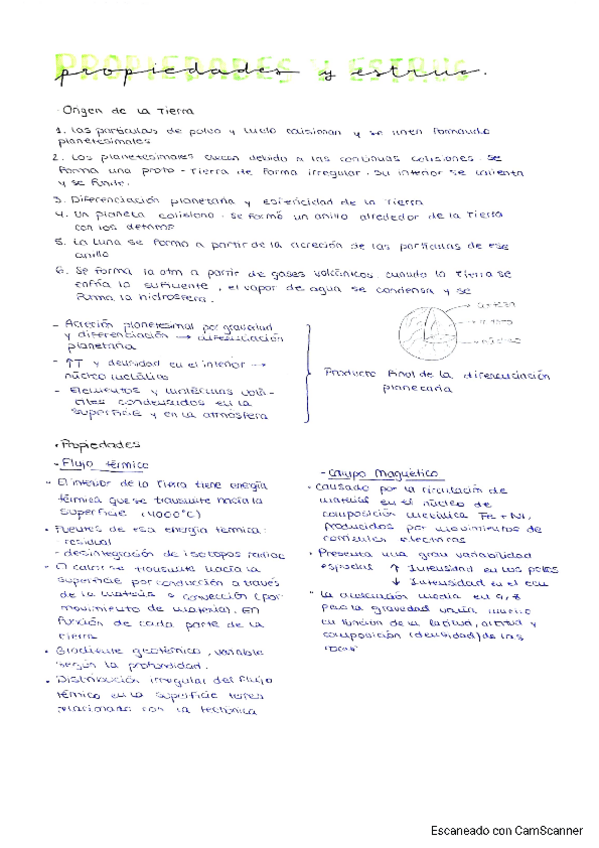 PROPIEDADES Y ESTRUC
propiedades y estruc.
· Origen de la Tierra
1. Las partículas de polvo y hielo colisionan y se unen formando
planetesimales
2. Los planetesimales crecen debido a las continuas colisiones. Se
forma una proto-Tierra de forma irregular. Su interior se calienta
y se funde.
3. Diferenciación planetaria y esfericidad de la Tierra
4. Un planeta colisionó. Se formó un anillo alrededor de la Tierra
con los detritos
5. La Luna se forma a partir de la acreción de las partículas de ese
anillo
6. Se forma la atm a partir de gases volcánicos. Cuando la Tierra se
enfría lo suficiente, el vapor de agua se condensa y se
forma la hidrosfera.
- Acreción planetesimal por gravedad
y diferenciación → diferenciación
planetaria
- ↑T y densidad en el interior →
núcleo metálico
- Elementos y moléculas volá-
tiles condensados en la
superficie y en la atmósfera
manto
núcleo
Producto final de la diferenciación
planetaria
· Propiedades
- Flujo térmico
· El interior de la Tierra tiene energía
térmica que se transmite hacia la
superficie (4000°C)
· Fuentes de esa energía térmica:
residual
- desintegración de isótopos radiac
· El calor se transmite hacia la
superficie por conducción a través
de la materia o convección (por
movimiento de material). En
función de cada parte de la
tierra
· Gradiente geotérmico, variable
según la profundidad.
· Distribución irregular del flujo
térmico en la superficie terres
relacionado con la tectónica
- Campo magnético
· Causado por la circulación de
material en el núcleo de
composición metálica Fe + Ni,
producidos por movimientos de
corrientes eléctricas
· Presenta una gran variabilidad
espacial ↑ Intensidad en los polos
↓ Intensidad en el ecu
· La aceleración media en 9,8
pero la gravedad varía mucho
en función de la latitud, altitud y
composición (densidad) de las
rocas
Escaneado con CamScanner